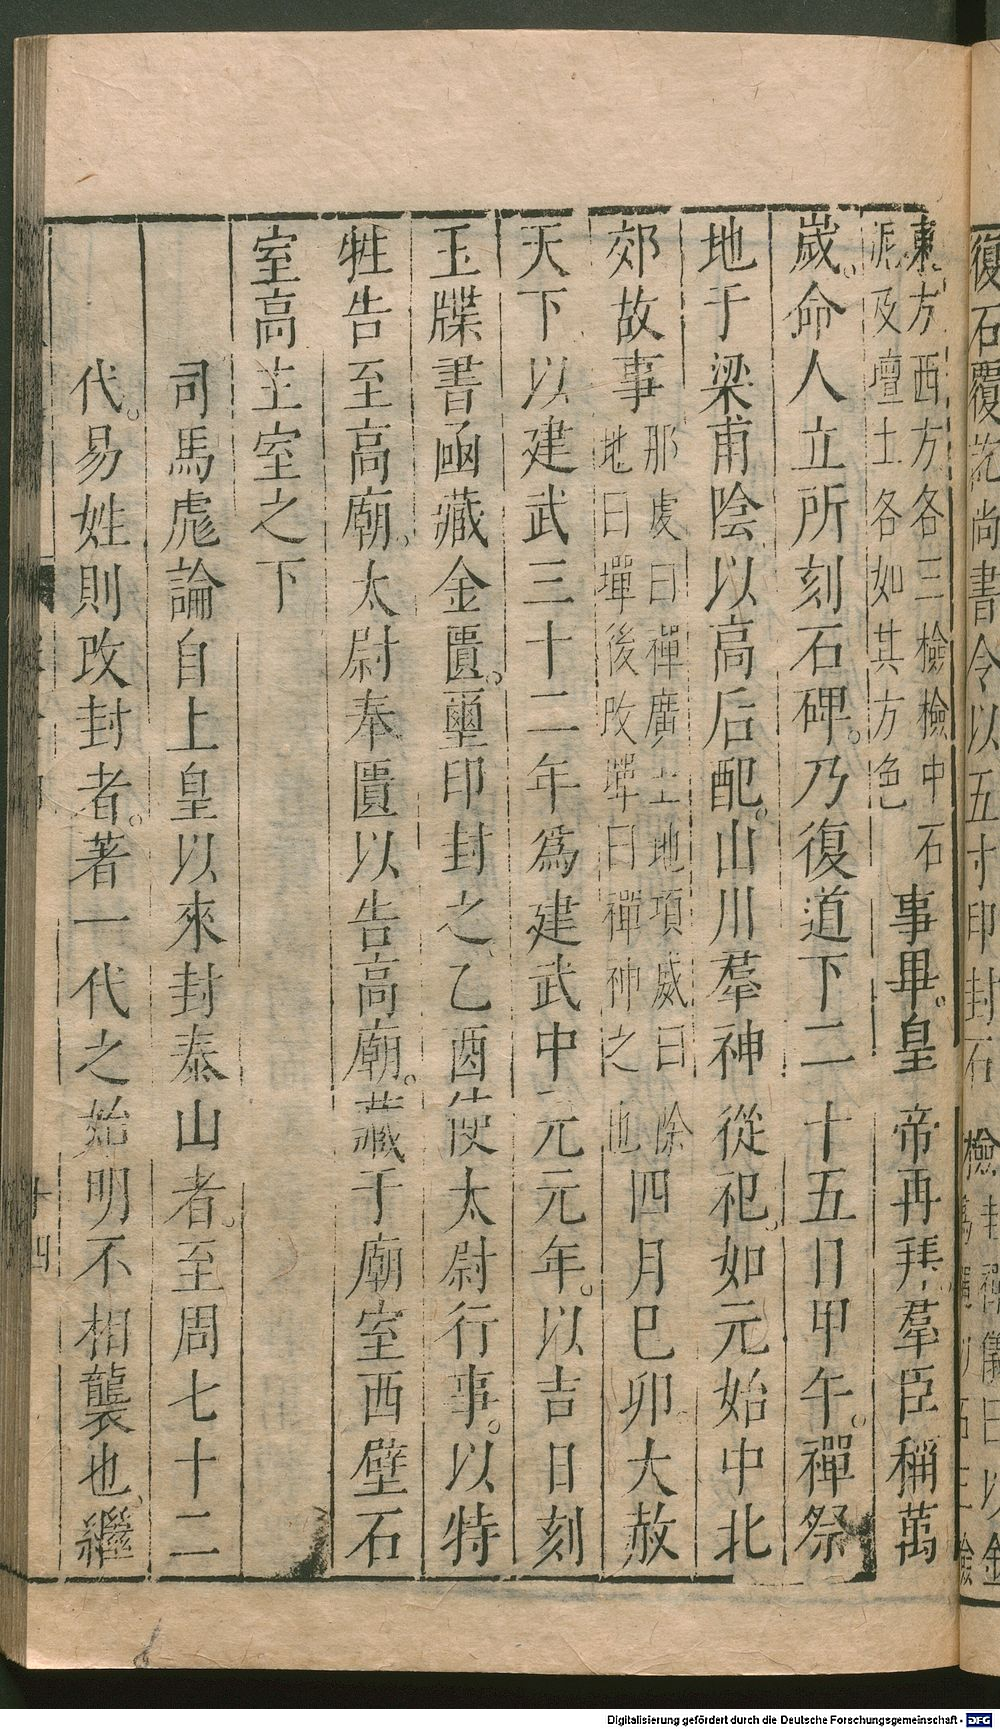 復石覆訖尚書令以五寸印封石檢
東方西方各三檢檢中石
泥及壇土各如其方色
事畢皇帝再拜羣臣稱萬
歲命人立所刻石碑乃復道下二十五日甲午禪祭
地于梁甫陰以高后配山川羣神從祀如元始中北
郊故事
那處曰禪廣土地項威曰除
地曰墠後改墠曰禪神之也
四月巳卯大赦
天下以建武三十二年爲建武中元元年以吉日刻
玉牒書函藏金匱璽印封之乙酉使太尉行事以特
牲告至高廟太尉奉匱以告高廟藏于廟室西壁石
室高主室之下
司馬彪論自上皇以來封泰山者至周七十二
代易姓則改封者著一代之始明不相襲也繼
十四
Digitalisierung gefördert durch die Deutsche Forschungsgemeinschaft - DFG